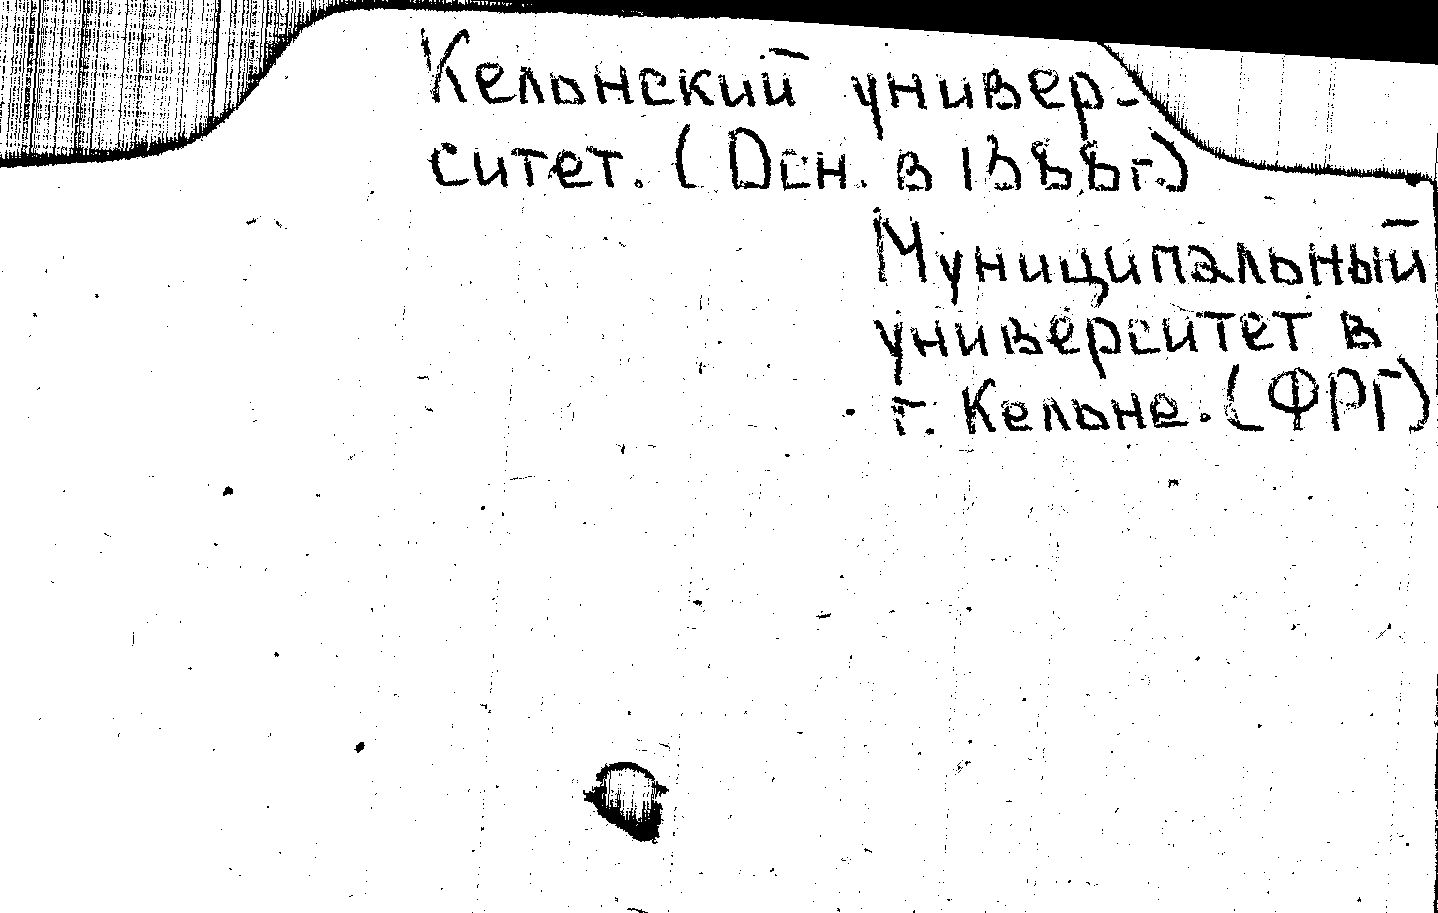 Кельнский универ-
ситет. (Осн. в 1388г.)
Муниципальный
университет в
г. Кельне. (ФРГ)